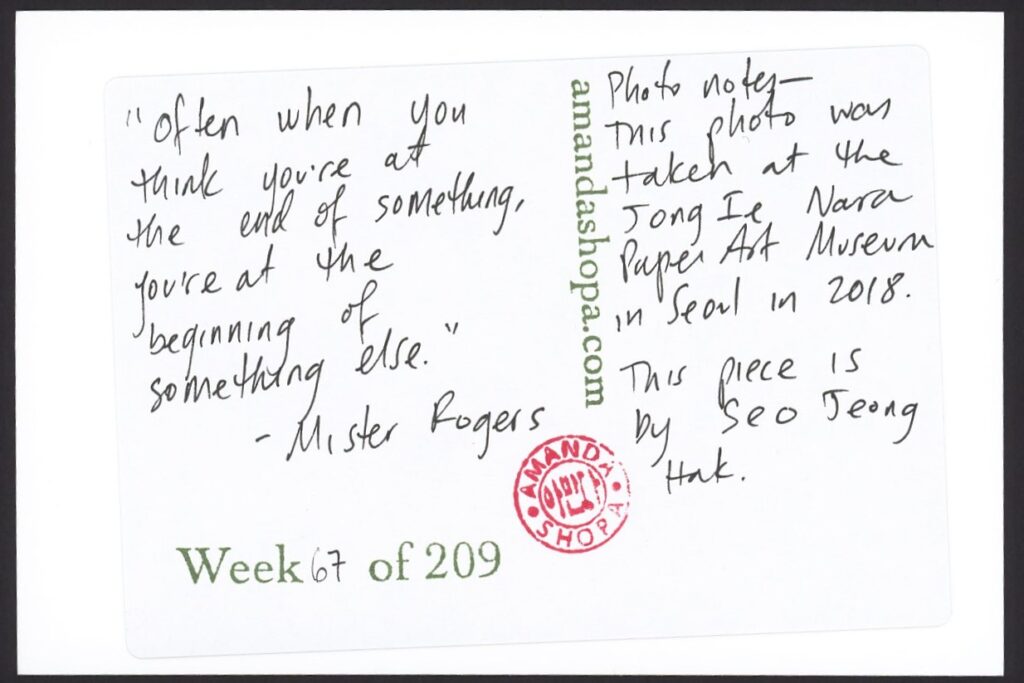 "Often when you
think you're at
the end of something,
you're at the
beginning of
something else."
- Mister Rogers
Week 67 of 209
amandashopa.com
Photo notes—
This photo was
taken at the
Jong Ie Nara
Paper Art Museum
in Seoul in 2018.
This piece is
by Seo Jeong
Hak.
AMANDA
SHOPA